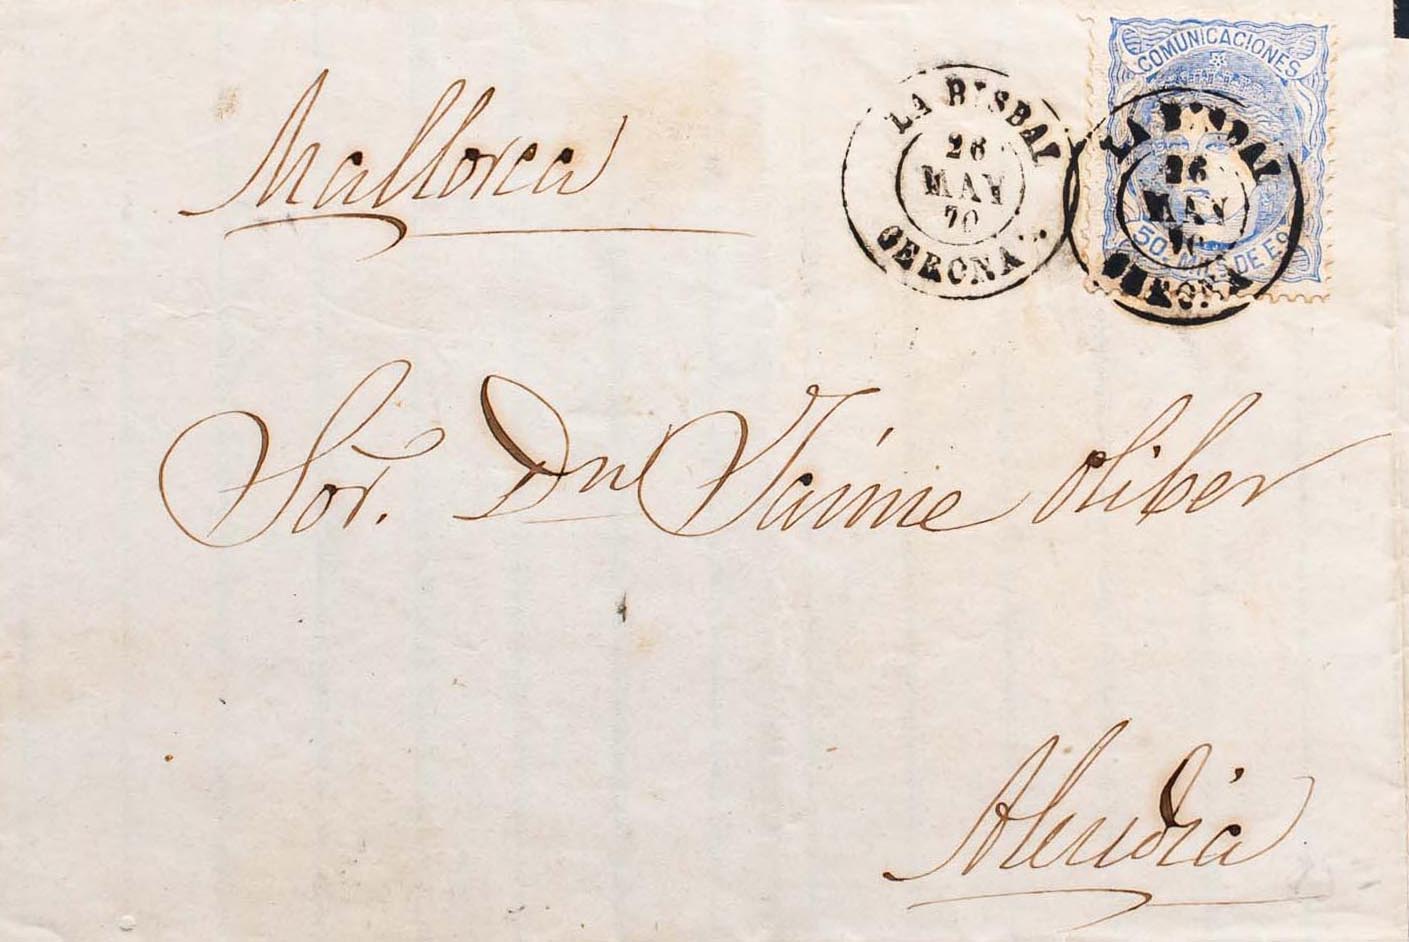 Mallorca
LA BISBAL
26
MAY
70
GERONA
COMUNICACIONES
50. MILS DE Eº
LA BISBAL
26
MAY
70
GERONA
Sor. Dn Jaime oliber
Alcudia